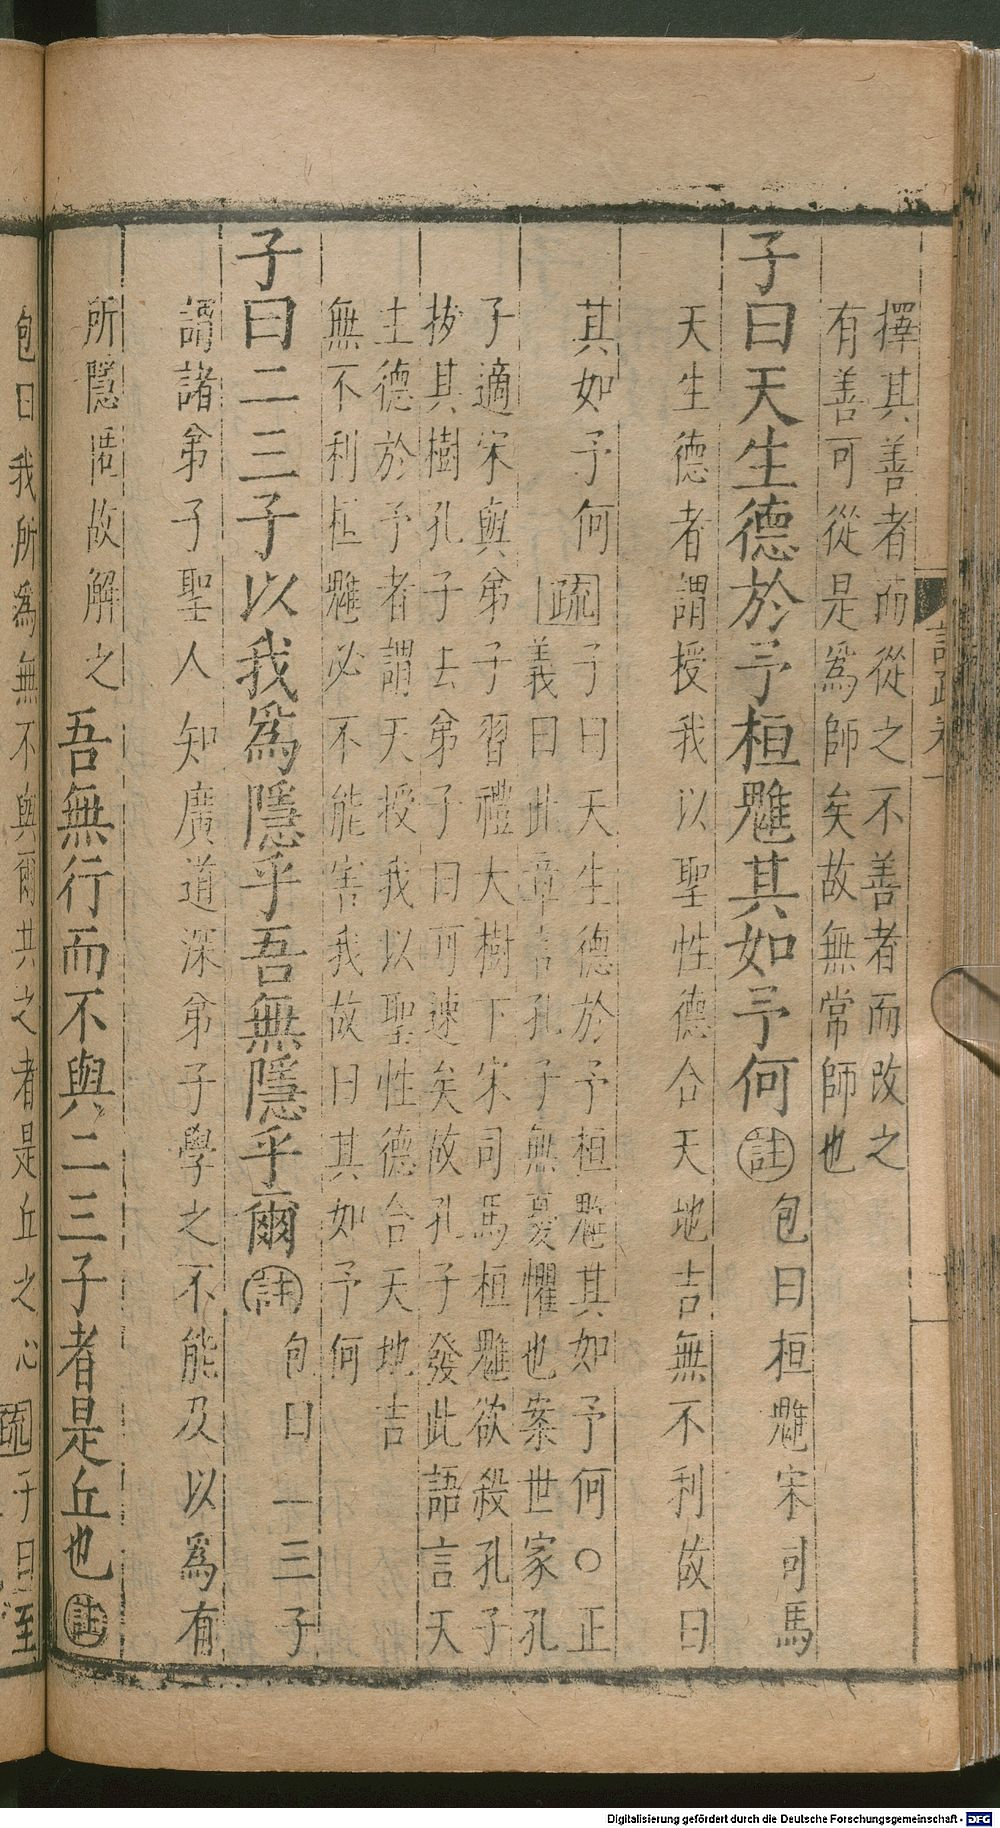 擇其善者而從之不善者而改之
有善可從是爲師矣故無常師也
子曰天生德於予桓魋其如予何註包曰桓魋宋司馬
天生德者謂授我以聖性德合天地吉無不利故曰
其如予何疏子曰天生德於予桓魋其如予何○正
義曰此章言孔子無憂懼也案世家孔
子適宋與弟子習禮大樹下宋司馬桓魋欲殺孔子
拔其樹孔子去弟子曰可速矣故孔子發此語言天
生德於予者謂天授我以聖性德合天地吉
無不利桓魋必不能害我故曰其如予何
子曰二三子以我爲隱乎吾無隱乎爾註包曰二三子
謂諸弟子聖人知廣道深弟子學之不能及以爲有
所隱匿故解之吾無行而不與二三子者是丘也註
包曰我所爲無不與爾共之者是丘之心疏子曰至
Digitalisierung gefördert durch die Deutsche Forschungsgemeinschaft - DFG